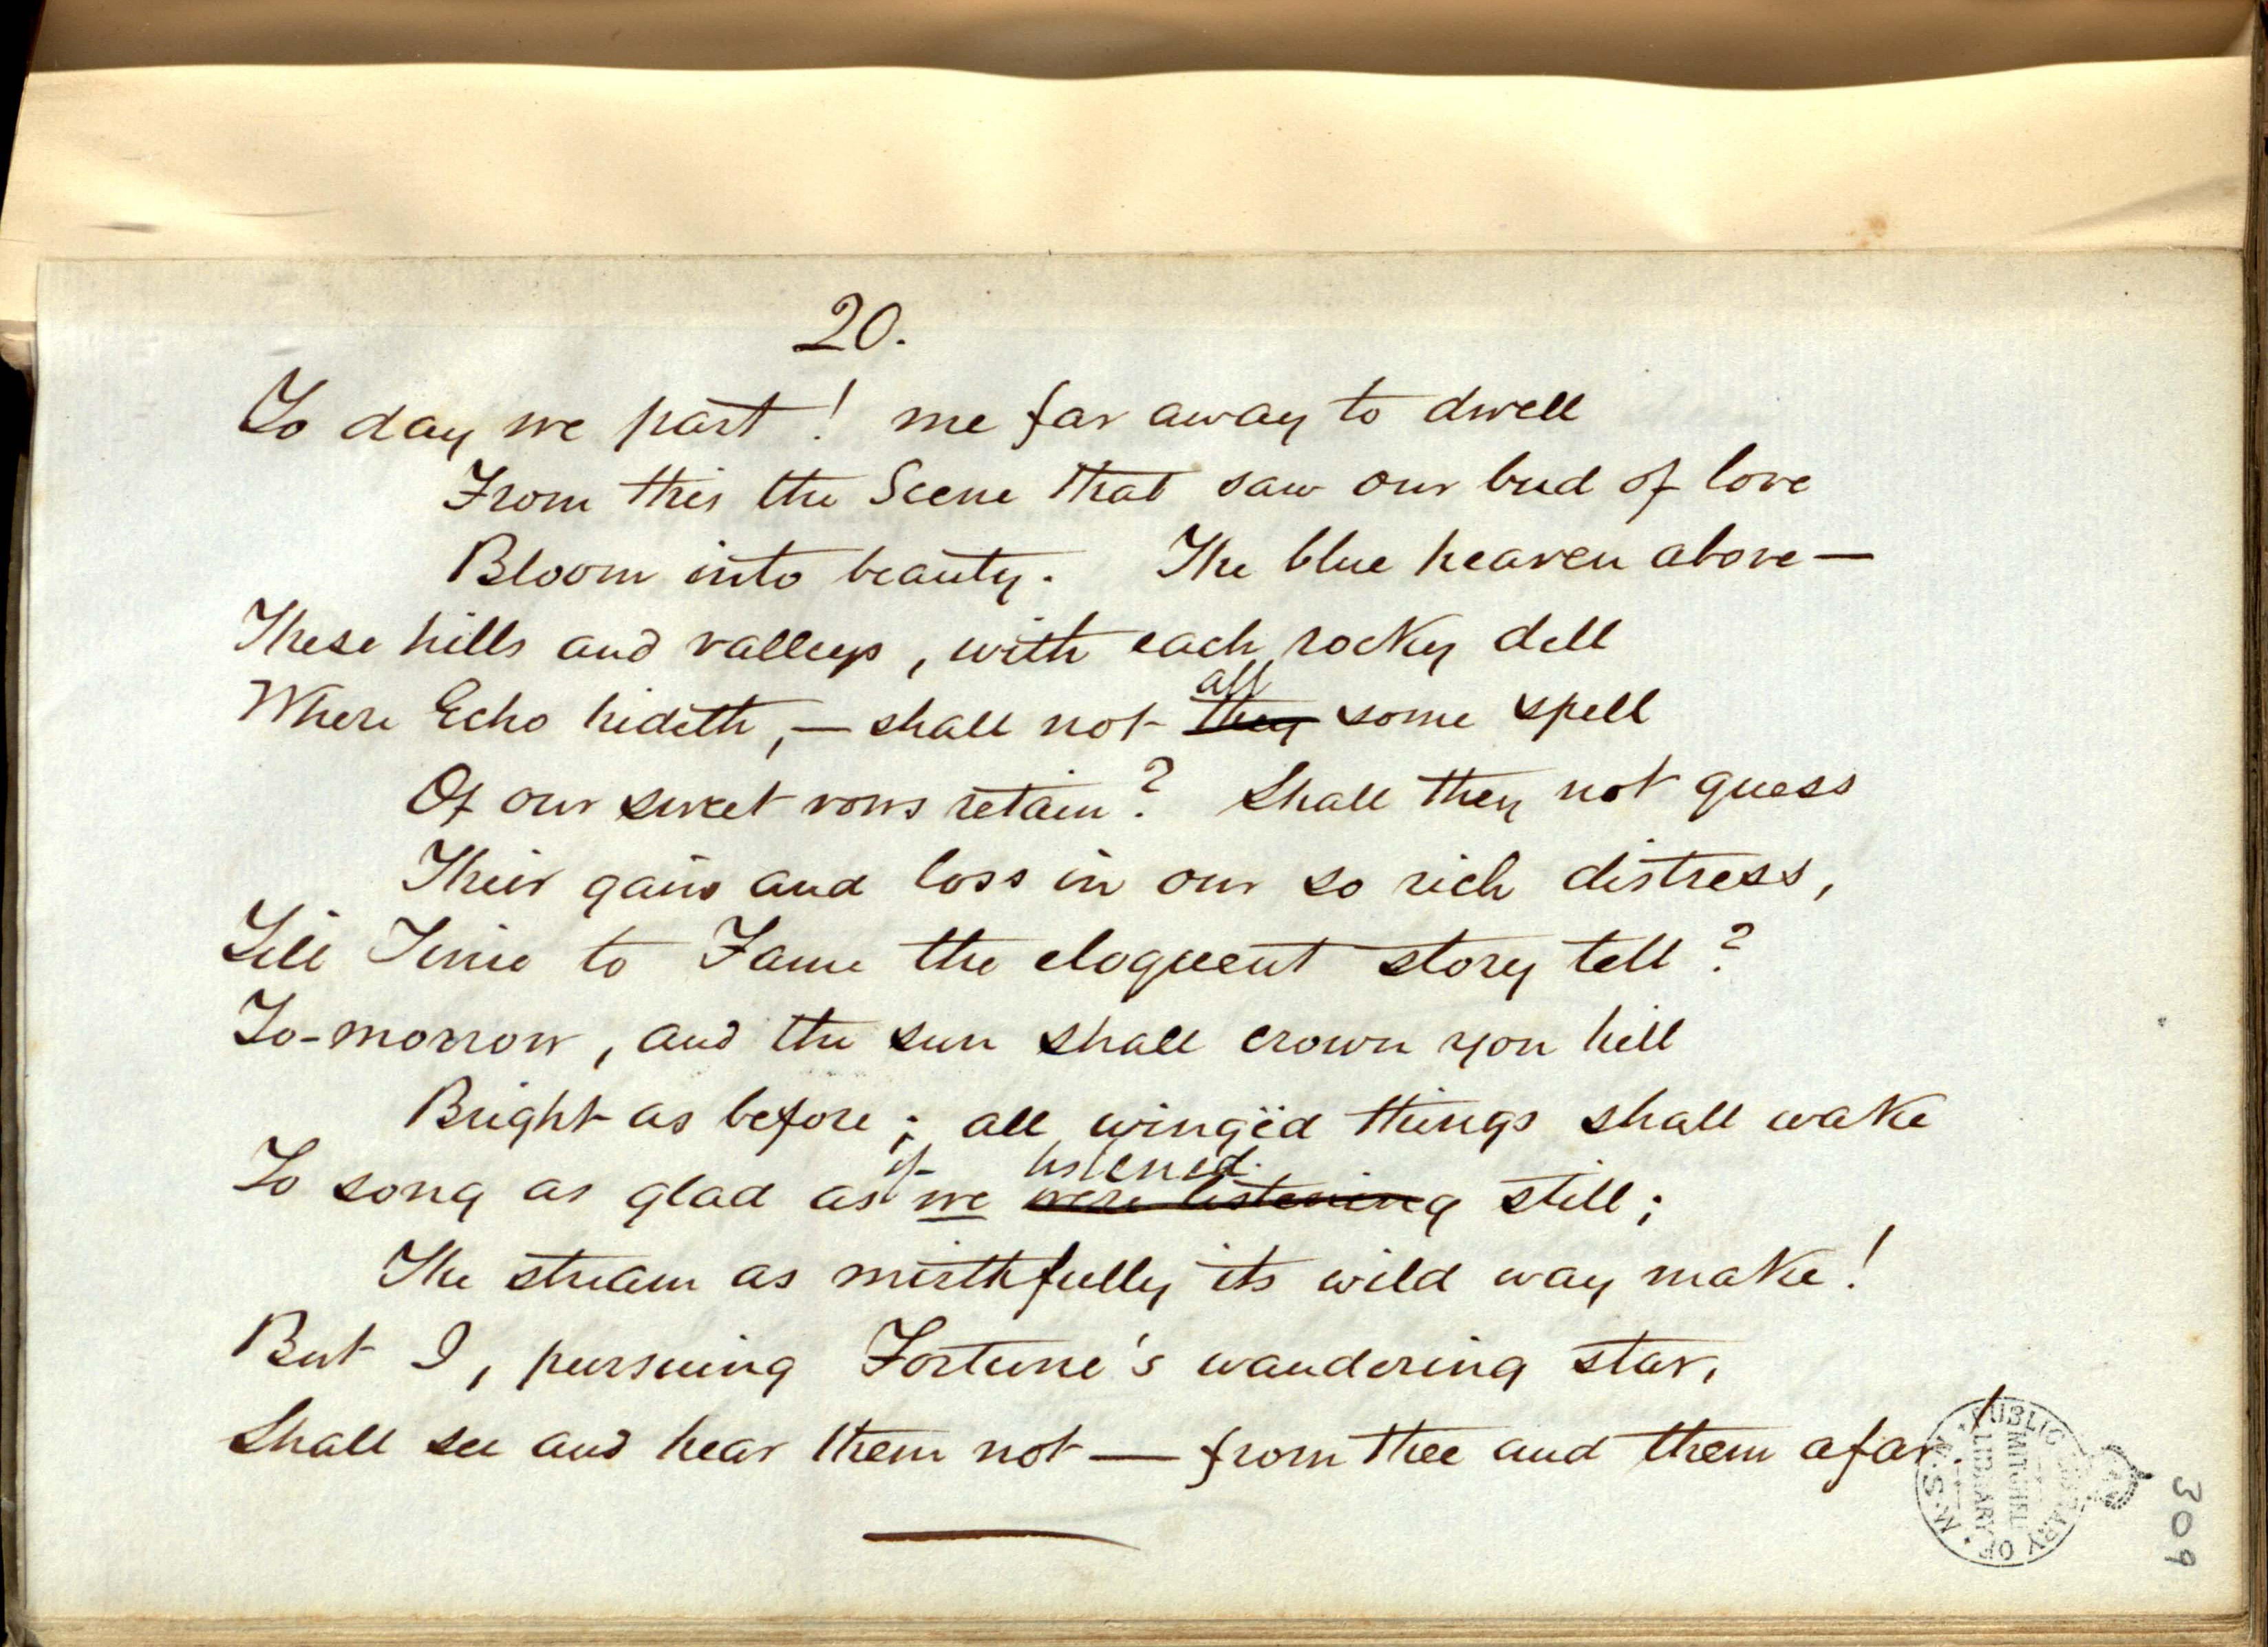 20.
To day we part! me far away to dwell
From this the Scene that saw our bud of love
Bloom into beauty. The blue heaven above—
These hills and valleys, with each rocky dell
all
Where Echo hideth,— shall not they some spell
Of our sweet vows retain? Shall they not guess
Their gain and loss in our so rich distress,
Till Time to Fame the eloquent story tell?
To-morrow, and the sun shall crown yon hill
Bright as before; all wingëd things shall wake
if listened
To song as glad as we were listening still;
The stream as mirthfully its wild way make!
But I, pursuing Fortune's wandering star,
Shall see and hear them not — from thee and them afar!
PUBLIC LIBRARY OF N.S.W.
MITCHELL
LIBRARY
309